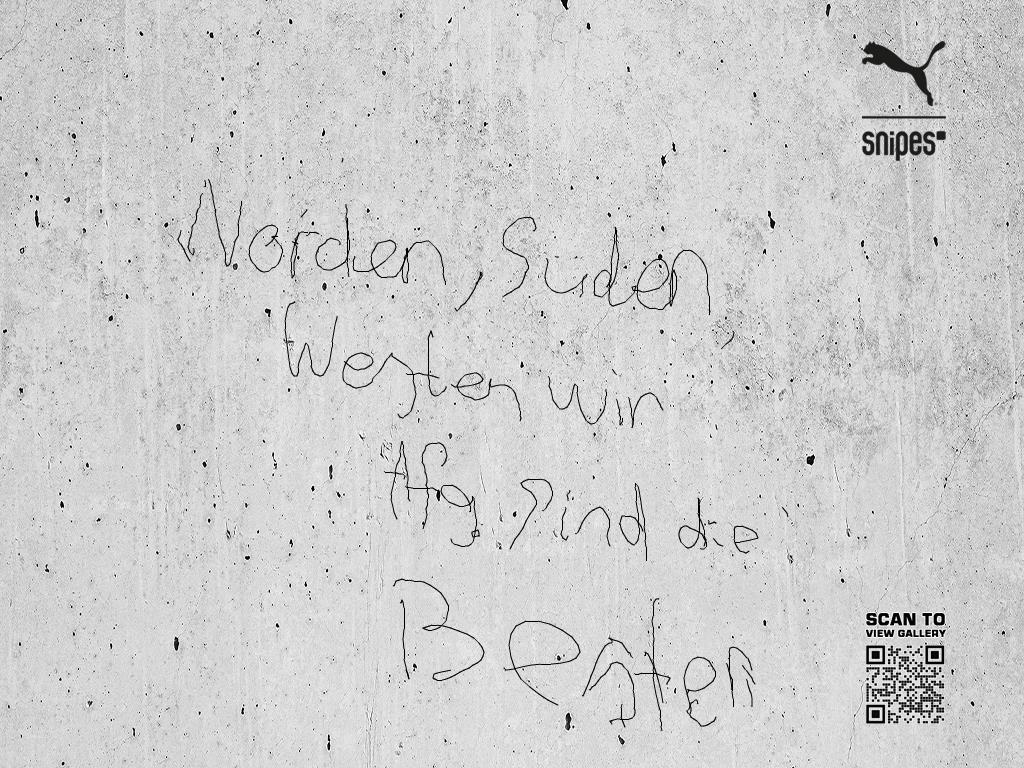 snipes
Norden, Süden,
Westen wir
Afg sind die
Besten
SCAN TO
VIEW GALLERY